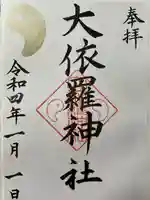 奉拝
大依羅神社
令和四年一月一日